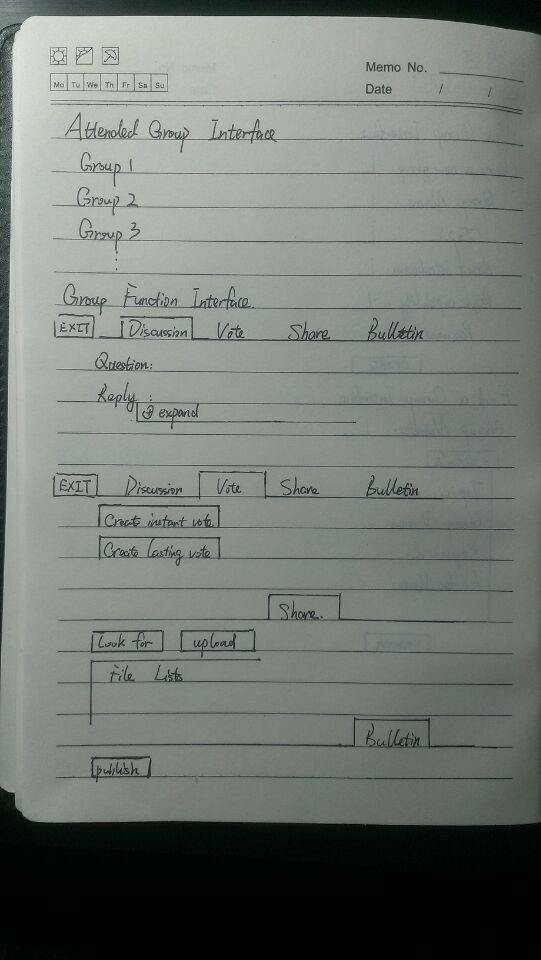 Memo No.
Mo Tu We Th Fr Sa Su
Date / /
Attended Group Interface
Group 1
Group 2
Group 3
Group Function Interface.
EXIT Discussion Vote Share Bulletin
Question:
Reply :
expand
EXIT Discussion Vote Share Bulletin
Create instant vote
Create lasting vote
Share.
look for upload
File Lists
Bulletin
publish